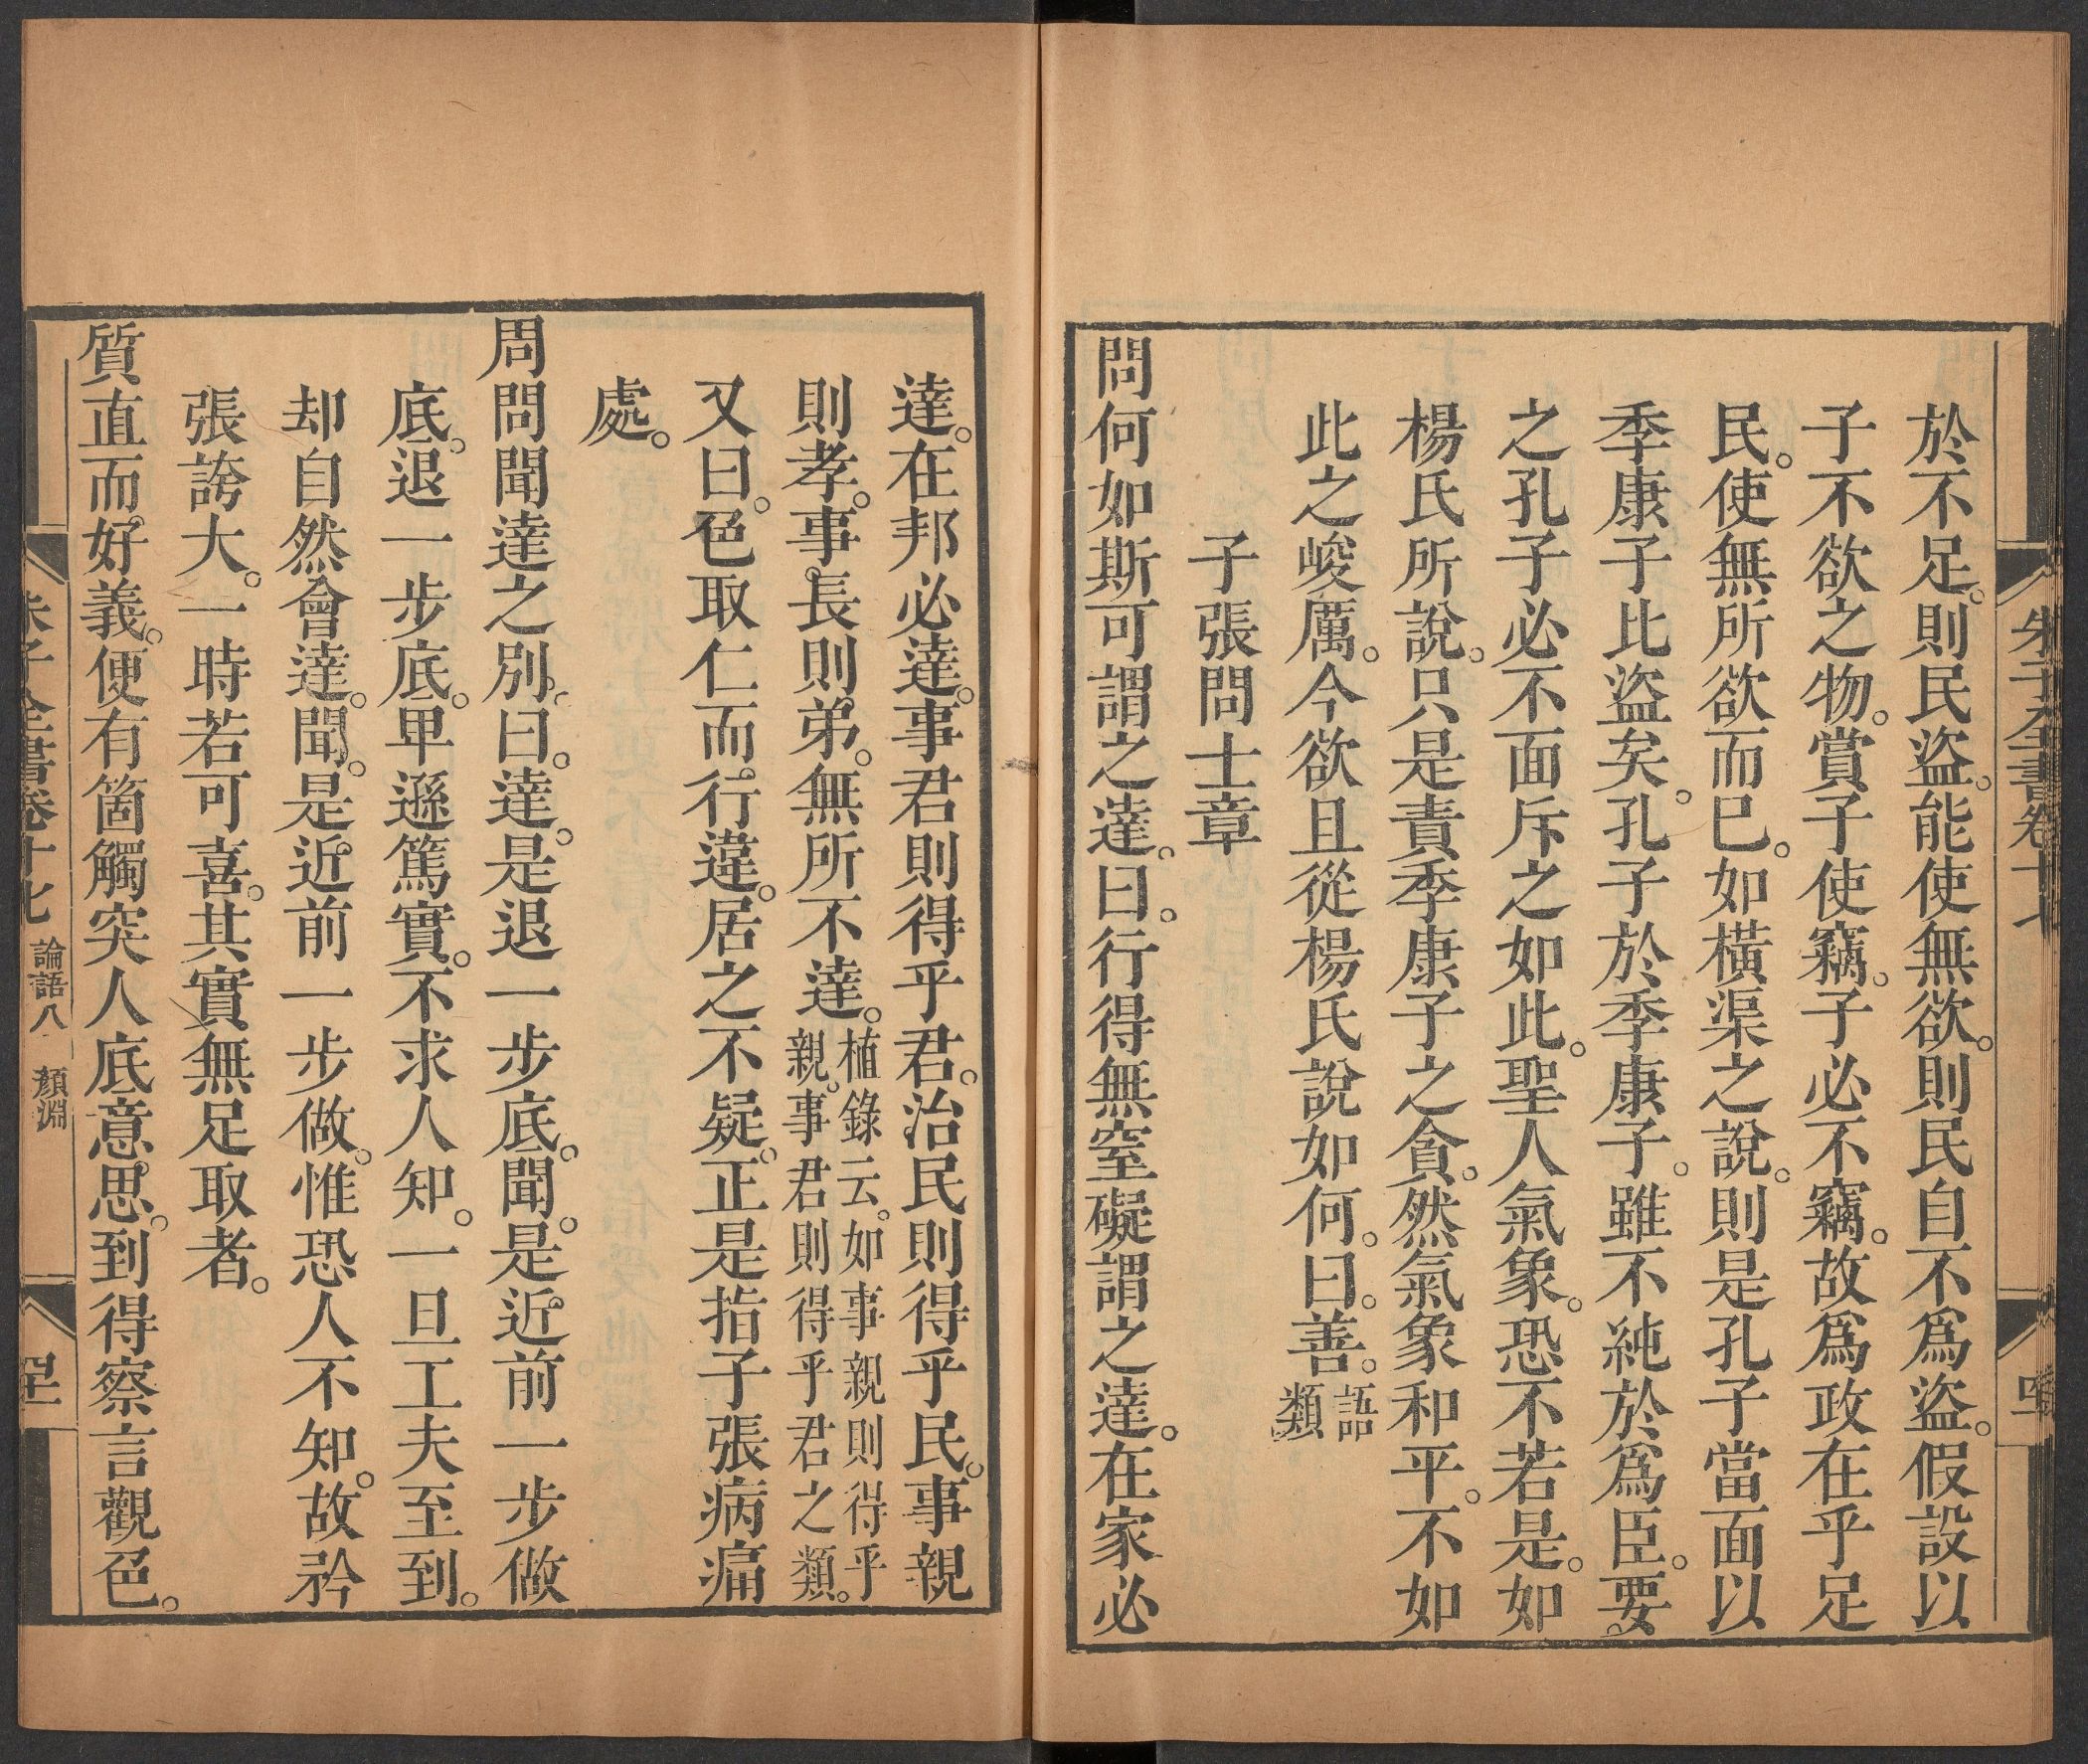 朱子全書卷十七
於不足。則民盜。能使無欲。則民自不爲盜。假設以
子不欲之物。賞子使竊。子必不竊。故爲政在乎足
民。使無所欲而已。如橫渠之說。則是孔子當面以
季康子比盜矣。孔子於季康子。雖不純於爲臣。要
之孔子必不面斥之如此。聖人氣象。恐不若是。如
楊氏所說。只是責季康子之貪。然氣象和平。不如
此之峻厲。今欲且從楊氏說如何。曰。善。語
類
子張問士章
問何如斯可謂之達。曰。行得無窒礙謂之達。在家必
達。在邦必達。事君則得乎君。治民則得乎民。事親
則孝。事長則弟。無所不達。植錄云。如事親則得乎
親。事君則得乎君之類。
又曰。色取仁而行違。居之不疑。正是指子張病痛
處。
周問聞達之別。曰。達。是退一步底。聞。是近前一步做
底。退一步底。卑遜篤實。不求人知。一旦工夫至到。
却自然會達。聞。是近前一步做。惟恐人不知。故矜
張誇大。一時若可喜。其實無足取者。
質直而好義。便有箇觸突人底意思。到得察言觀色。
朱子全書卷十七 論語八 顏淵